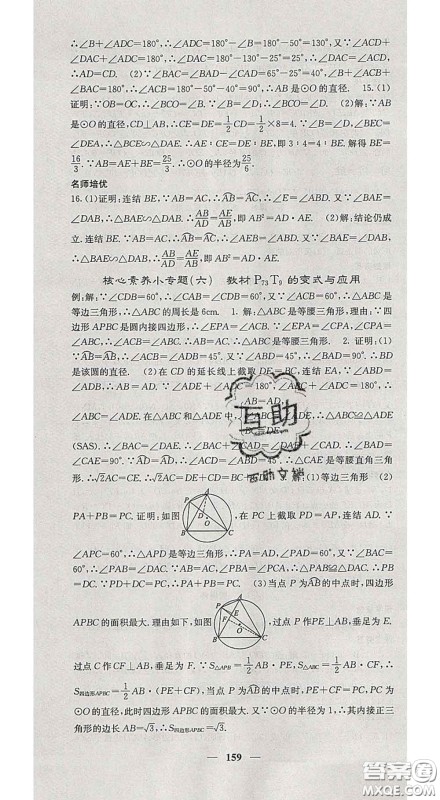 ∴∠B+∠ADC=180°,∴∠ADC=180°-∠B=180°-50°=130°,又∵∠ACD+
∠DAC+∠ADC=180°,∴∠DAC=180°-130°-25°=25°,∴∠DAC=∠ACD,
∴AD=CD. (2)∵∠BAC=∠BAD-∠CAD=65°-25°=40°,∠B+∠BAC+
∠BCA=180°,∴∠BCA=180°-50°-40°=90°,∴AB是⊙O的直径. 15.(1)
证明:∵OB=OC,∴∠BCO=∠B.∵∠B=∠D,∴∠BCO=∠D. (2)解:∵AB
是⊙O的直径,CD⊥AB,∴CE=DE=1/2CD=1/2×8=4.∵∠B=∠D,∠BEC=
∠DEA,∴△BCE∽△DAE,∴AE∶CE=DE∶BE,即3∶4=4∶BE.解得BE=
16/3.∵AB=AE+BE=25/3.∴⊙O的半径为25/6.
名师培优
16.(1)证明:连结BE.∵AB=AC,∴AB=AC,∴∠AEB=∠ABD.又∵∠BAE=
∠DAB,∴△ABE∽△DAB,∴AB/AD=AE/AB,即AB²=AD·AE. (2)解:结论仍成
立.连结BE.∵AB=AC,∴AB=AC,∴∠E=∠ABD.又∵∠BAE=
∠DAB,∴△ABE∽△DAB,∴AB/AD=AE/AB,即AB²=AD·AE.
核心素养小专题(六) 教材P₇₃T₉的变式与应用
例:解:∵∠CDB=60°,∴∠CAB=∠CDB=60°.∵∠ABC=60°,∴△ABC是
等边三角形,∴△ABC的周长是6cm. 1.解:△ABC是等腰三角形,理由:∵四
边形APBC是圆内接四边形,∴∠EPA=∠ACB.∵∠EPA=∠CPA,∠CPA=
∠ABC,∴∠ACB=∠ABC,∴AB=AC,∴△ABC是等腰三角形. 2.证明:(1)
∵AB=AB,∴∠ADB=∠ACB.又∵∠ADB=45°,∠ABD=45°,∴∠BAD=90°.∴BD
是该圆的直径. (2)在CD的延长线上截取DE=BC,连结EA,∵∠ABD=
∠ADB,∴AB=AD.∵∠ADE+∠ADC=180°,∠ABC+∠ADC=180°,∴
∠ABC=∠ADE.在△ABC和△ADE中,
(SAS).∴∠BAC=∠DAE.∴∠BAC+∠CAD=∠DAE+∠CAD.∴∠BAD=
∠CAE=90°.∵AD=AD,∴∠ACD=∠ABD=45°.∴△CAE是等腰直角三角
(1)等边三角形 (2)
PA+PB=PC.证明:如图
P
A
D
O
B
C
,在PC上截取PD=AP,连结AD.∵
∠APC=60°,∴△APD是等边三角形,∴AP=AD,∠PAD=60°,又∵∠BAC=
60°,∴∠PAB=∠DAC.又∵AB=AC,∴△PAB≌△DAC.∴PB=
DC.∵PD+DC=PC,∴PA+PB=PC. (3)当点P为AB的中点时,四边形
APBC的面积最大.理由如下,如图
P
A
E
F
O
B
C
,过点P作PE⊥AB,垂足为E.
过点C作CF⊥AB,垂足为F.∵S△APB=1/2AB·PE,S△ABC=1/2AB·CF,∴
S四边形APBC=1/2AB·(PE+CF).当点P为AB的中点时,PE+CF=PC,PC为
⊙O的直径,∴四边形APBC的面积最大.又∵⊙O的半径为1,∴其内接正三
角形的边长AB=√3,∴S四边形APBC=√3.
159
互助
互助文档
答案圈
MXQE.COM